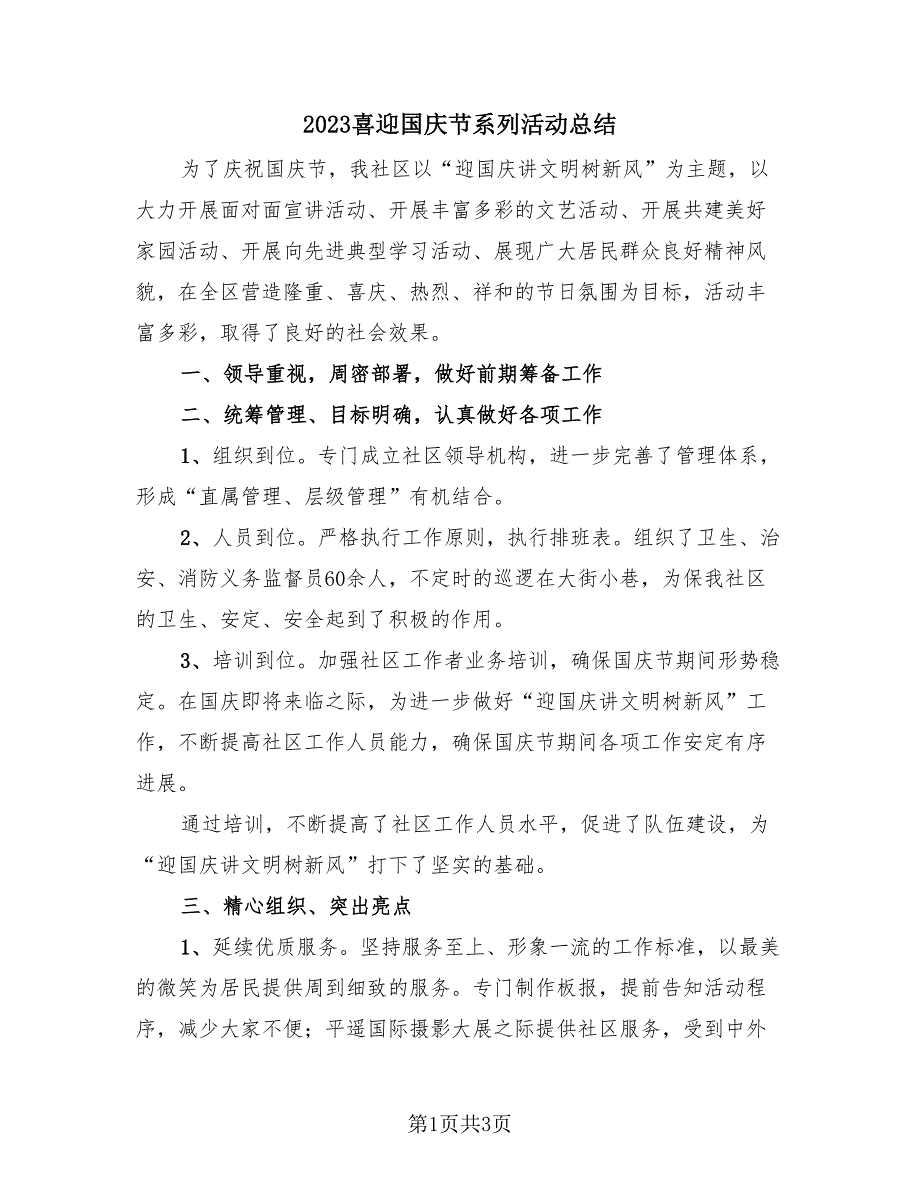 2023喜迎国庆节系列活动总结
为了庆祝国庆节，我社区以“迎国庆讲文明树新风”为主题，以
大力开展面对面宣讲活动、开展丰富多彩的文艺活动、开展共建美好
家园活动、开展向先进典型学习活动、展现广大居民群众良好精神风
貌，在全区营造隆重、喜庆、热烈、祥和的节日氛围为目标，活动丰
富多彩，取得了良好的社会效果。
一、领导重视，周密部署，做好前期筹备工作
二、统筹管理、目标明确，认真做好各项工作
1、组织到位。专门成立社区领导机构，进一步完善了管理体系，
形成“直属管理、层级管理”有机结合。
2、人员到位。严格执行工作原则，执行排班表。组织了卫生、治
安、消防义务监督员60余人，不定时的巡逻在大街小巷，为保我社区
的卫生、安定、安全起到了积极的作用。
3、培训到位。加强社区工作者业务培训，确保国庆节期间形势稳
定。在国庆即将来临之际，为进一步做好“迎国庆讲文明树新风”工
作，不断提高社区工作人员能力，确保国庆节期间各项工作安定有序
进展。
通过培训，不断提高了社区工作人员水平，促进了队伍建设，为
“迎国庆讲文明树新风”打下了坚实的基础。
三、精心组织、突出亮点
1、延续优质服务。坚持服务至上、形象一流的工作标准，以最美
的微笑为居民提供周到细致的服务。专门制作板报，提前告知活动程
序，减少大家不便；平遥国际摄影大展之际提供社区服务，受到中外
第1页共3页